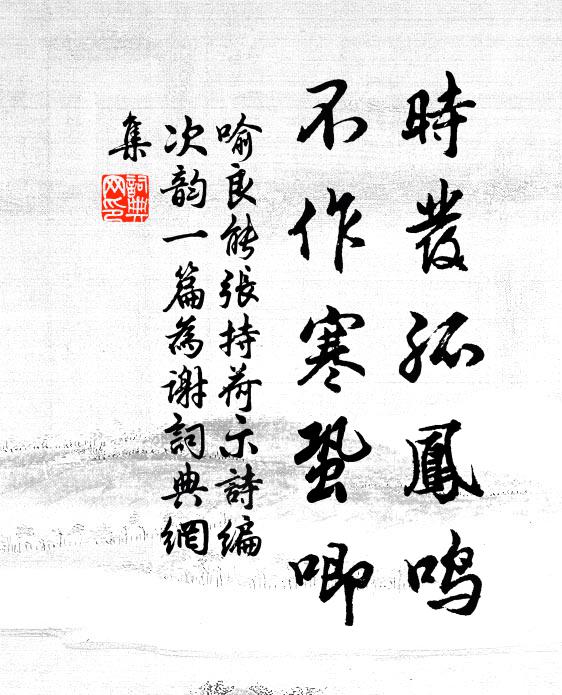 時發孤鳳鳴
不作寒蛩唧
喻良能張持荷示詩編
次韵一篇為谢詞典網
集
詞典
网印